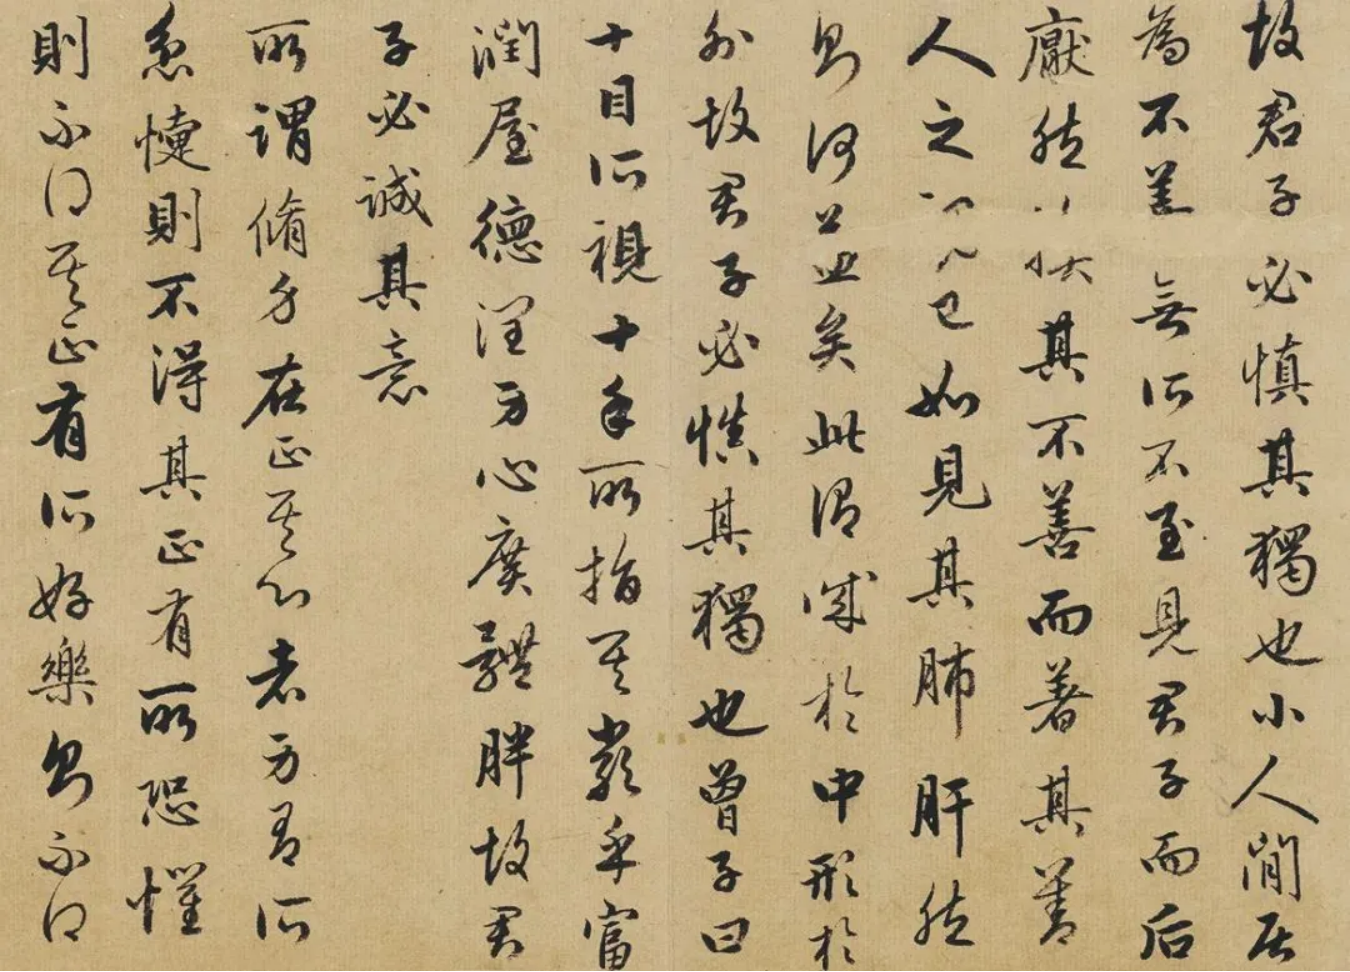 故君子必慎其獨也小人閒居
為不善無所不至見君子而后
厭然揜其不善而著其善
人之視己如見其肺肝然
則何益矣此謂誠於中形於
外故君子必慎其獨也曾子曰
十目所視十手所指其嚴乎富
潤屋德潤身心廣體胖故君
子必誠其意
所謂脩身在正其心者身有所
忿懥則不得其正有所恐懼
則不得其正有所好樂則不得